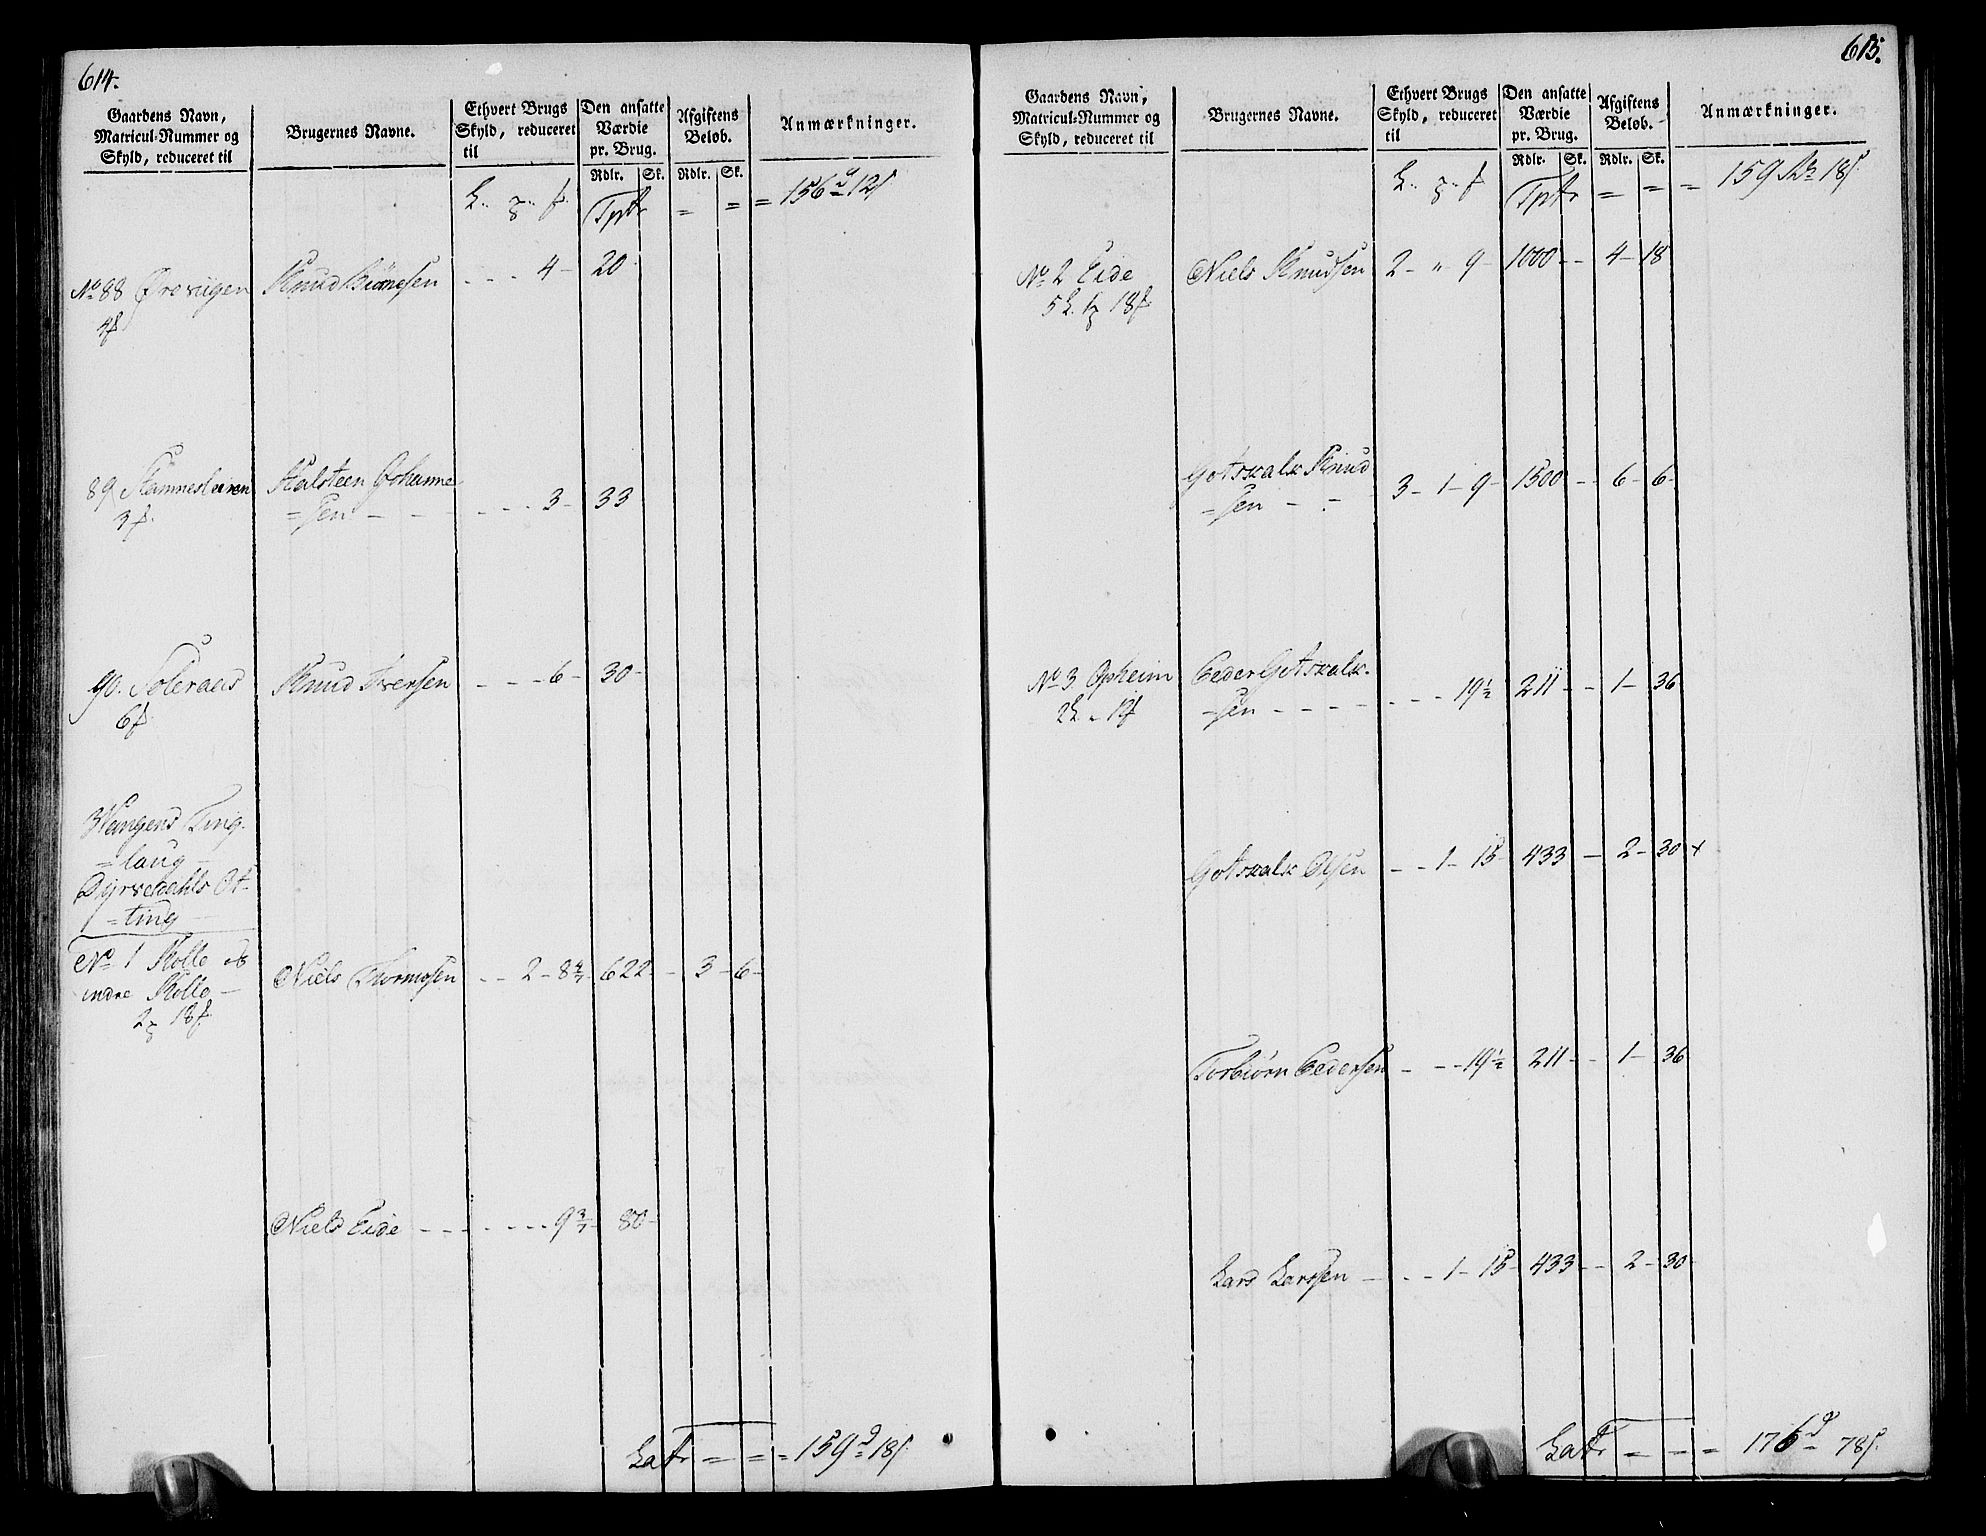 614.
Gaardens Navn, Matricul-Nummer og Skyld, reduceret til
Brugernes Navne.
Ethvert Brugs Skyld, reduceret til
Den ansatte Værdie pr. Brug.
Afgiftens Beløb.
Anmærkninger.
Rdlr. Sk. Rdlr. Sk.
Tptr = = = 156 12
No 88 Knud - - - 4 - 20 -
89 Halsteen Johanne
3 =sen - - - - - - 3 - 33
90. Soleraas Knud Iversen - - - 6 - 30 -
6
Wangens Ting
=laug
Dyrvedahls Ot
=ting
No 1 Kolle og Niels Thormosen - - 2 - 8 4/7 - 622 - - 3 - 6 -
indre Kolle -
2 18
Niels Eide - - - - - - - 9 3/7 - 80 -
Latr = = = 159 18
615.
Gaardens Navn, Matricul-Nummer og Skyld, reduceret til
Brugernes Navne.
Ethvert Brugs Skyld, reduceret til
Den ansatte Værdie pr. Brug.
Afgiftens Beløb.
Anmærkninger.
Rdlr. Sk. Rdlr. Sk.
Tptr = = = 159 18
No 2 Eide Niels Knudsen 2 - " 9 - 1000 - - 4 - 18
5 1 18
Gotskalk Knud
=sen - - 3 - 1 - 9 - 1500 - - 6 - 6 -
No 3 Opheim Peder Gotskalk-
2 " 12 =sen - - - - - - - 19 1/2 211 - - 1 - 36
Gotskalk Olsen - - 1 - 15 - 433 - 2 - 30 +
Torbiørn Pedersen - - - 19 1/2 211 - - 1 - 36
Lars Larssen - - - 1 - 15 - 433 - - 2 - 30
Latr = = = 176 78